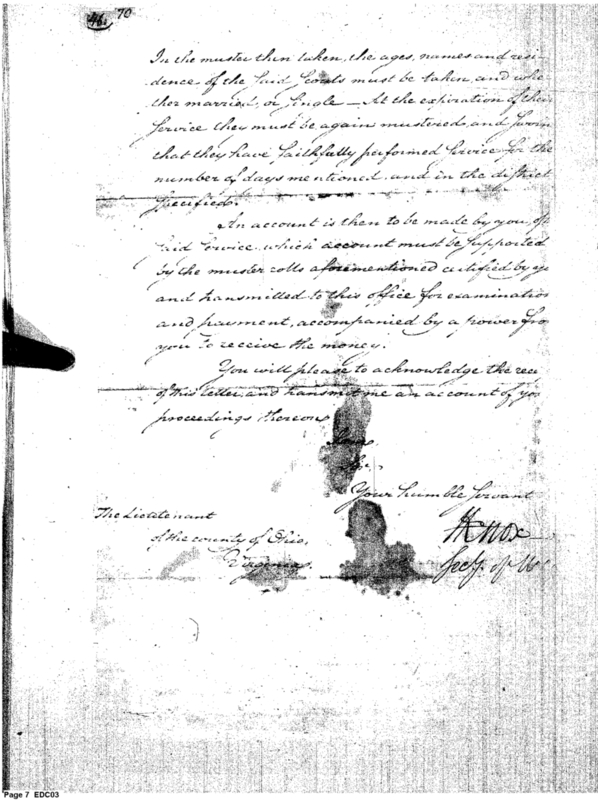 46. 70
In the muster then taken, the ages, names and resi-
dence of the said Scouts must be taken, and whe-
ther married, or single — At the expiration of their
service they must be again mustered, and sworn
that they have faithfully performed service for the
number of days mentioned, and in the district
specified.
An account is then to be made by you, of
said service, which account must be supported
by the muster rolls aforementioned certified by
and transmitted to this office for examination
and payment, accompanied by a power fro
you to receive the money.
You will please to acknowledge the rece
of this letter, and transmit me an account of yo
proceedings thereon
I am
Sir,
Your humble Servant
The Lieutenant
of the county of Ohio,
Virginia.
HKnox
Secy. of
Page 7 EDC03